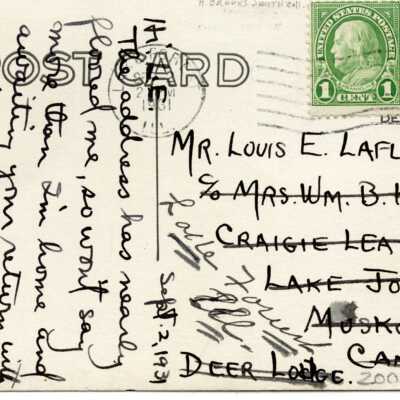 H. BROOKS
POST CARD
UNITED STATES POSTAGE
1 CENT 1
1931
Hi LE
The address has nearly
floored me, so won't say
more than I'm home and
awaiting your return with
Sept. 2, 1931
MR. LOUIS E. LAFL
c/o MRS. WM. B.
CRAIGIE LEA
LAKE JO
MUSKO
CAN
DEER LODGE.
200